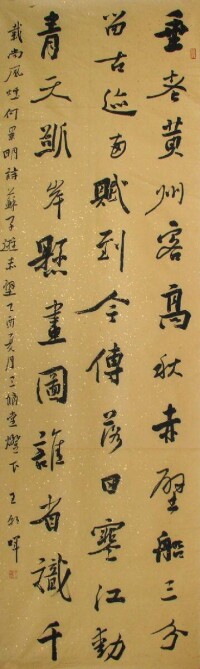 垂老黄州客高秋赤壁船三分
留古迹两赋到今傳落日寒江動
青天斷岸懸畫圖誰省識千
載尚風煙何景明詩蘇子遊赤壁乙酉夏月三堂燈下王暉